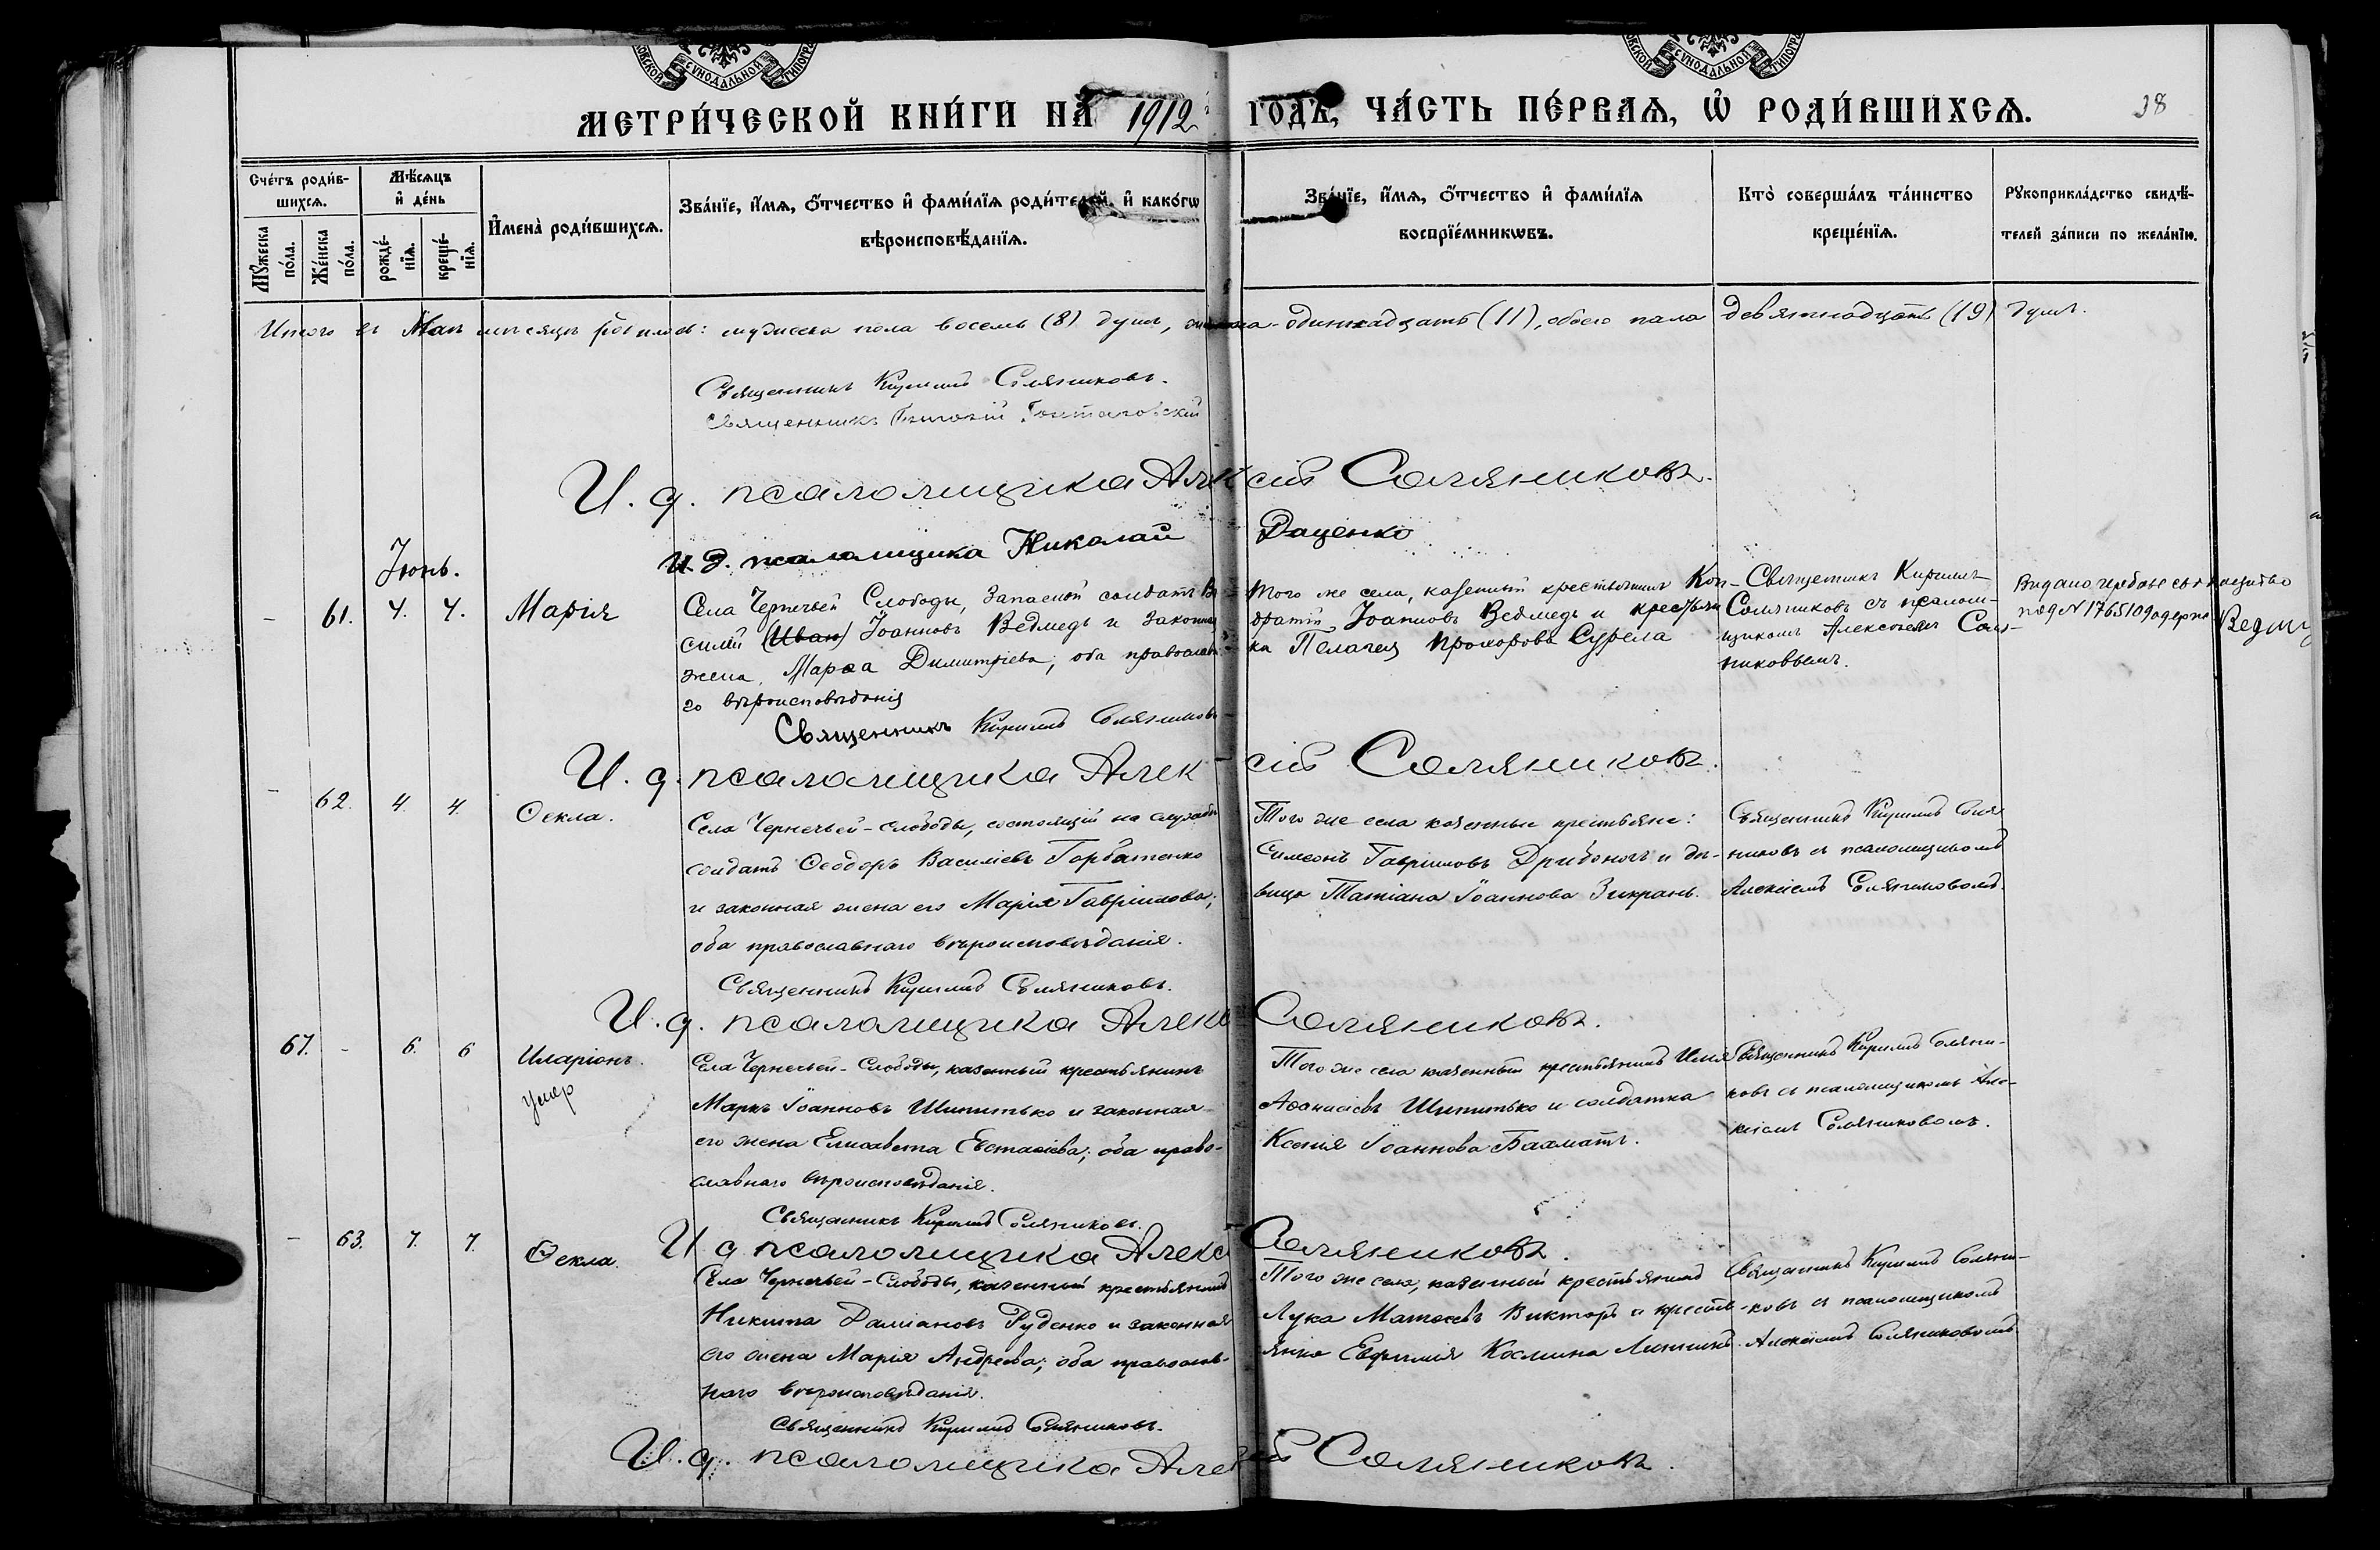 МЕТРИ́ЧЕСКОЙ КНИ́ГИ НА 1912 ГОДЪ, ЧА́СТЬ ПЕ́РВАѦ, Ѡ РОДИ́ВШИХСѦ.
38
Сче́тъ роди́в-
шихсѧ.
Мѣ́сѧцъ
и҆ де́нь
Мꙋ́жеска
по́ла.
Же́нска
по́ла.
рожде́-
нїѧ.
креще́-
нїѧ.
И҆мена̀ роди́вшихсѧ.
Зва́нїе, и҆́мѧ, ѻ҆́тчество и҆ фами́лїѧ роди́телей, и҆ како́гѡ
вѣроисповѣ́данїѧ.
Зва́нїе, и҆́мѧ, ѻ҆́тчество и҆ фами́лїѧ
воспрїе́мникѡвъ.
Кто̀ соверша́лъ та́инство
креще́нїѧ.
Рꙋкоприкла́дство свидѣ́-
телей за́писи по жела́нїю.
Итого въ Маѣ мѣсяцѣ родилось: мужеска пола восемь (8) душъ, одиннадцать (11), обоего пола девятнадцать (19) душъ.
Священникъ Кириллъ Соляниковъ.
Священникъ
И. д. псаломщика Алексій Соляниковъ.
И. д. псаломщика Николай Даценко
Іюнь.
- 61. 4. 4. Марія
Села Чернечьей Слободы, Запасной солдатъ Ва
силій (Иван) Іоанновъ Ведмедь и законная
жена Марѳа Димитріева; оба православна
го вѣроисповѣданія
Того же села, казенный крестьянинъ Кон-
дратій Іоанновъ Ведмедь и крестьян
ка Пелагея Прохорова Сурела
Священникъ Кириллъ
Соляниковъ съ псалом-
щикомъ Алексѣемъ Соля-
никовымъ.
под № 1765
Ведм
Священникъ Кириллъ Соляниковъ
И. д. псаломщика Алексій Соляниковъ.
- 62. 4. 4. Ѳекла.
Села Чернечьей-Слободы, состоящій на службѣ
солдатъ Ѳеодоръ Василіевъ Горбатенко
и законная жена его Марія Гавріилова;
оба православнаго вѣроисповѣданія.
Того же села казенные крестьяне:
Симеонъ Гавриловъ Дрибонегъ и дѣ-
вица Татіана Іоаннова Зикрань.
Священникъ Кириллъ Соля
никовъ съ псаломщикомъ
Алексіемъ Соляниковомъ.
Священникъ Кириллъ Соляниковъ.
И. д. псаломщика Алексій Соляниковъ.
67. - 6. 6 Иларіонъ.
умер
Села Чернечьей-Слободы, казенный крестьянинъ
Маркъ Іоанновъ Шипитько и законная
его жена Елисавета Евстаѳіева; оба право-
славнаго вѣроисповѣданія.
Того же села казенный крестьянинъ Илія
Аѳанасіевъ Шипитько и солдатка
Ксенія Іоаннова Бахматъ.
Священникъ Кириллъ Соляни-
ковъ съ псаломщикомъ Але-
ксіемъ Соляниковомъ.
Священникъ Кириллъ Соляниковъ.
И д псаломщика Алексій Соляниковъ.
- 63. 7. 7. Ѳекла.
Села Чернечьей-Слободы, казенный крестьянинъ
Никита Даміановъ Руденко и законная
его жена Марія Андреева; оба православ-
наго вѣроисповѣданія.
Того же села, казенный крестьянинъ
Лука Матѳеевъ Викторъ и кресть-
янка Евфимія Космина Линникъ.
Священникъ Кириллъ Соляни-
ковъ съ псаломщикомъ
Алексіемъ Соляниковомъ
Священникъ Кириллъ Соляниковъ.
И. д. псаломщика Алексій Соляниковъ.